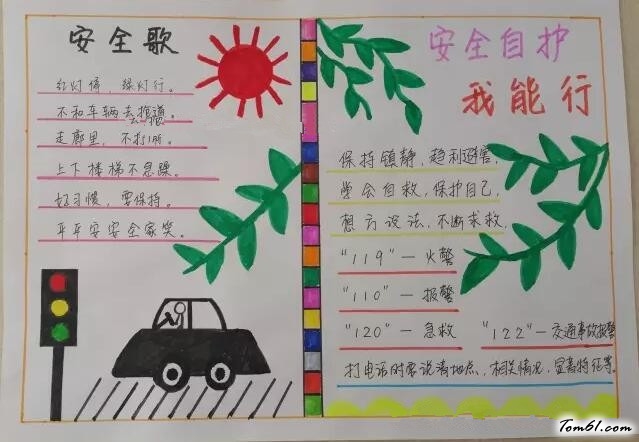 安全歌
红灯停，绿灯行。
不和车辆去抢道。
走廊里，不打闹。
上下楼梯不急躁。
好习惯，要保持。
平平安安全家笑。
安全自护
我能行
保持镇静，趋利避害，
学会自救，保护自己，
想方设法，不断求救，
"119"—火警
"110"—报警
"120"—急救 "122"—交通事故报警
打电话时要说清地点，相关情况，显著特征等。
Tom61.com